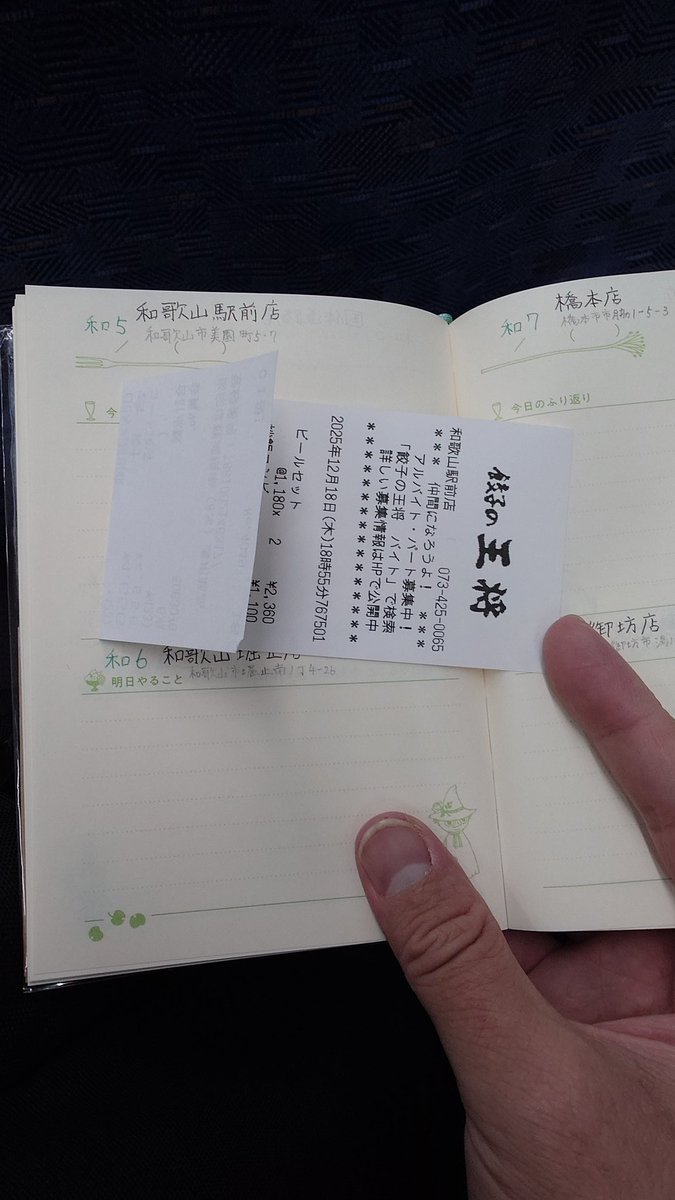 和5 和歌山駅前店
和歌山市美園町5-7
和6
明日やること
和7 橋本店
今日のふり返り
御坊店
餃子の王将
和歌山駅前店 073-425-0065
*** 仲間になろうよ! ***
アルバイト・パート募集中!
「餃子の王将 バイト」で検索
詳しい募集情報はHPで公開中
2025年12月18日(木)18時55分767501
ビールセット
@1,180x 2 ¥2,360
¥1,100